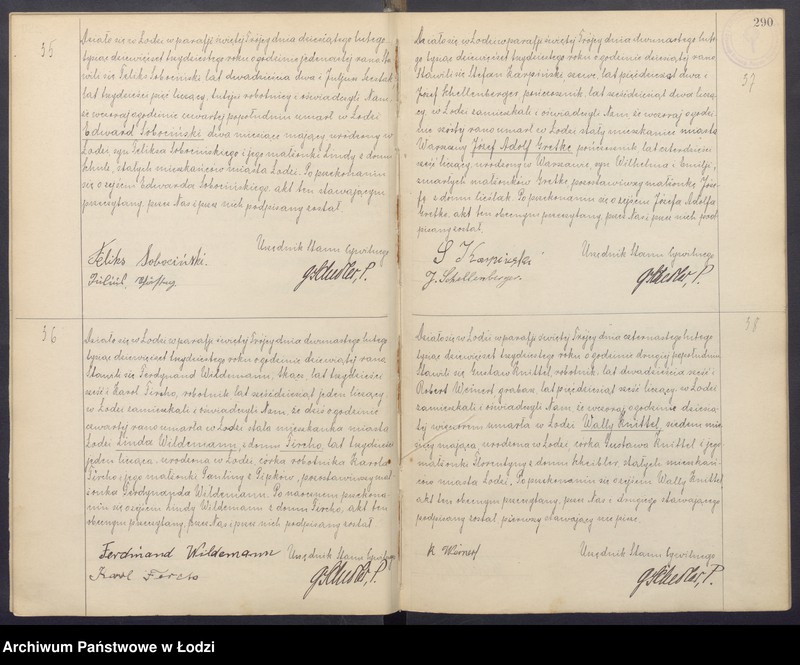 35
Działo się w Łodzi w parafji świętej Trójcy dnia dziesiątego lutego
tysiąc dziewięćset trzydziestego roku o godzinie jedenastej rano. Sta-
wili się Feliks Sobociński, lat dwadzieścia dwa i Juljusz
lat trzydzieści pięć liczący, tutejsi robotnicy i oświadczyli Nam,
że wczoraj o godzinie czwartej popołudniu umarł w Łodzi
Edward Sobociński, dwa miesiące mający, urodzony w
Łodzi, syn Feliksa Sobocińskiego i jego małżonki Lindy z domu
stałych mieszkańców miasta Łodzi. Po przekonaniu
się o zejściu Edwarda Sobocińskiego, akt ten stawającym
przeczytany, przez Nas i przez nich podpisany został
Urzędnik Stanu Cywilnego
Feliks Sobociński.
36
Działo się w Łodzi w parafji świętej Trójcy dnia dwunastego lutego
tysiąc dziewięćset trzydziestego roku o godzinie dziewiątej rano.
Stawili się Ferdynand Wildemann, tkacz, lat trzydzieści
sześć i Karol Fircho, robotnik lat sześćdziesiąt jeden liczący
w Łodzi zamieszkali i oświadczyli Nam, że dziś o godzinie
czwartej rano umarła w Łodzi stała mieszkanka miasta
Łodzi Linda Wildemann z domu Fircho, lat trzydzieści
jeden licząca, urodzona w Łodzi, córka robotnika Karola
Fircho i jego małżonki Pauliny z Pipków, pozostawiwszy mał-
żonka Ferdynanda Wildemann. Po naocznem przekona-
niu się o zejściu Lindy Wildemann z domu Fircho, akt ten
obecnym przeczytany, przez Nas i przez nich podpisany został
Ferdinand Wildemann Urzędnik Stanu Cywilnego
Karol
290
37
Działo się w Łodzi w parafji świętej Trójcy dnia dwunastego lute-
go tysiąc dziewięćset trzydziestego roku o godzinie dziesiątej rano
Stawili się Stefan Karpiński szewc, lat pięćdziesiąt dwa i
Józef Schellenberger pończosznik, lat sześćdziesiąt dwa liczą-
cy, w Łodzi zamieszkali i oświadczyli Nam, że wczoraj o godzi-
nie szóstej rano umarł w Łodzi stały mieszkaniec miasta
Warszawy Józef Adolf Gretke, pończosznik, lat czterdzieści
sześć liczący, urodzony w Warszawie, syn Wilhelma i Emilji,
zmarłych małżonków Gretke, pozostawiwszy małżonkę Józe-
fę z domu Cieślak. Po przekonaniu się o zejściu Józefa Adolfa
Gretke, akt ten obecnym przeczytany, przez Nas i przez nich pod-
pisany został.
S Karpiński Urzędnik Stanu Cywilnego
J. Schellenberger.
38
Działo się w Łodzi w parafji świętej Trójcy dnia czternastego lutego
tysiąc dziewięćset trzydziestego roku o godzinie drugiej popołudniu
Stawili się Gustaw Knittel, robotnik, lat dwadzieścia sześć i
Robert Weinert grabarz, lat pięćdziesiąt sześć liczący, w Łodzi
zamieszkali i oświadczyli Nam, że wczoraj o godzinie dziesią-
tej wieczorem umarła w Łodzi Wally Knittel, siedem mie-
sięcy mająca, urodzona w Łodzi, córka Gustawa Knittel i jego
małżonki Florentyny z domu Scheibler, stałych mieszkań-
ców miasta Łodzi. Po przekonaniu się o zejściu Wally Knittel,
akt ten obecnym przeczytany, przez Nas i drugiego stawającego
podpisany został, pierwszy stawający nie pisze.
R Weinert Urzędnik Stanu Cywilnego
Archiwum Państwowe w Łodzi